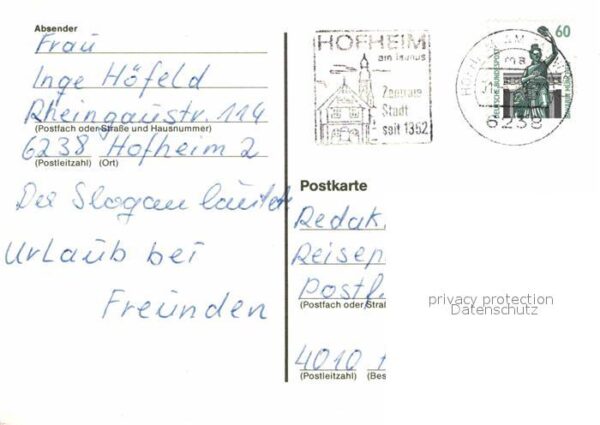 Absender
Frau
Inge Höfeld
Rheingaustr. 114
(Postfach oder Straße und Hausnummer)
6238 Hofheim 2
(Postleitzahl) (Ort)
Der Slogan lautete
Urlaub bei
Freunden
HOFHEIM
am Taunus
Zentrale
Stadt
seit 1352
6238
60
DEUTSCHE BUNDESPOST
Postkarte
Redak
Reisep
Postf
(Postfach oder Straß
4010
(Postleitzahl) (Bes
privacy protection
Datenschutz